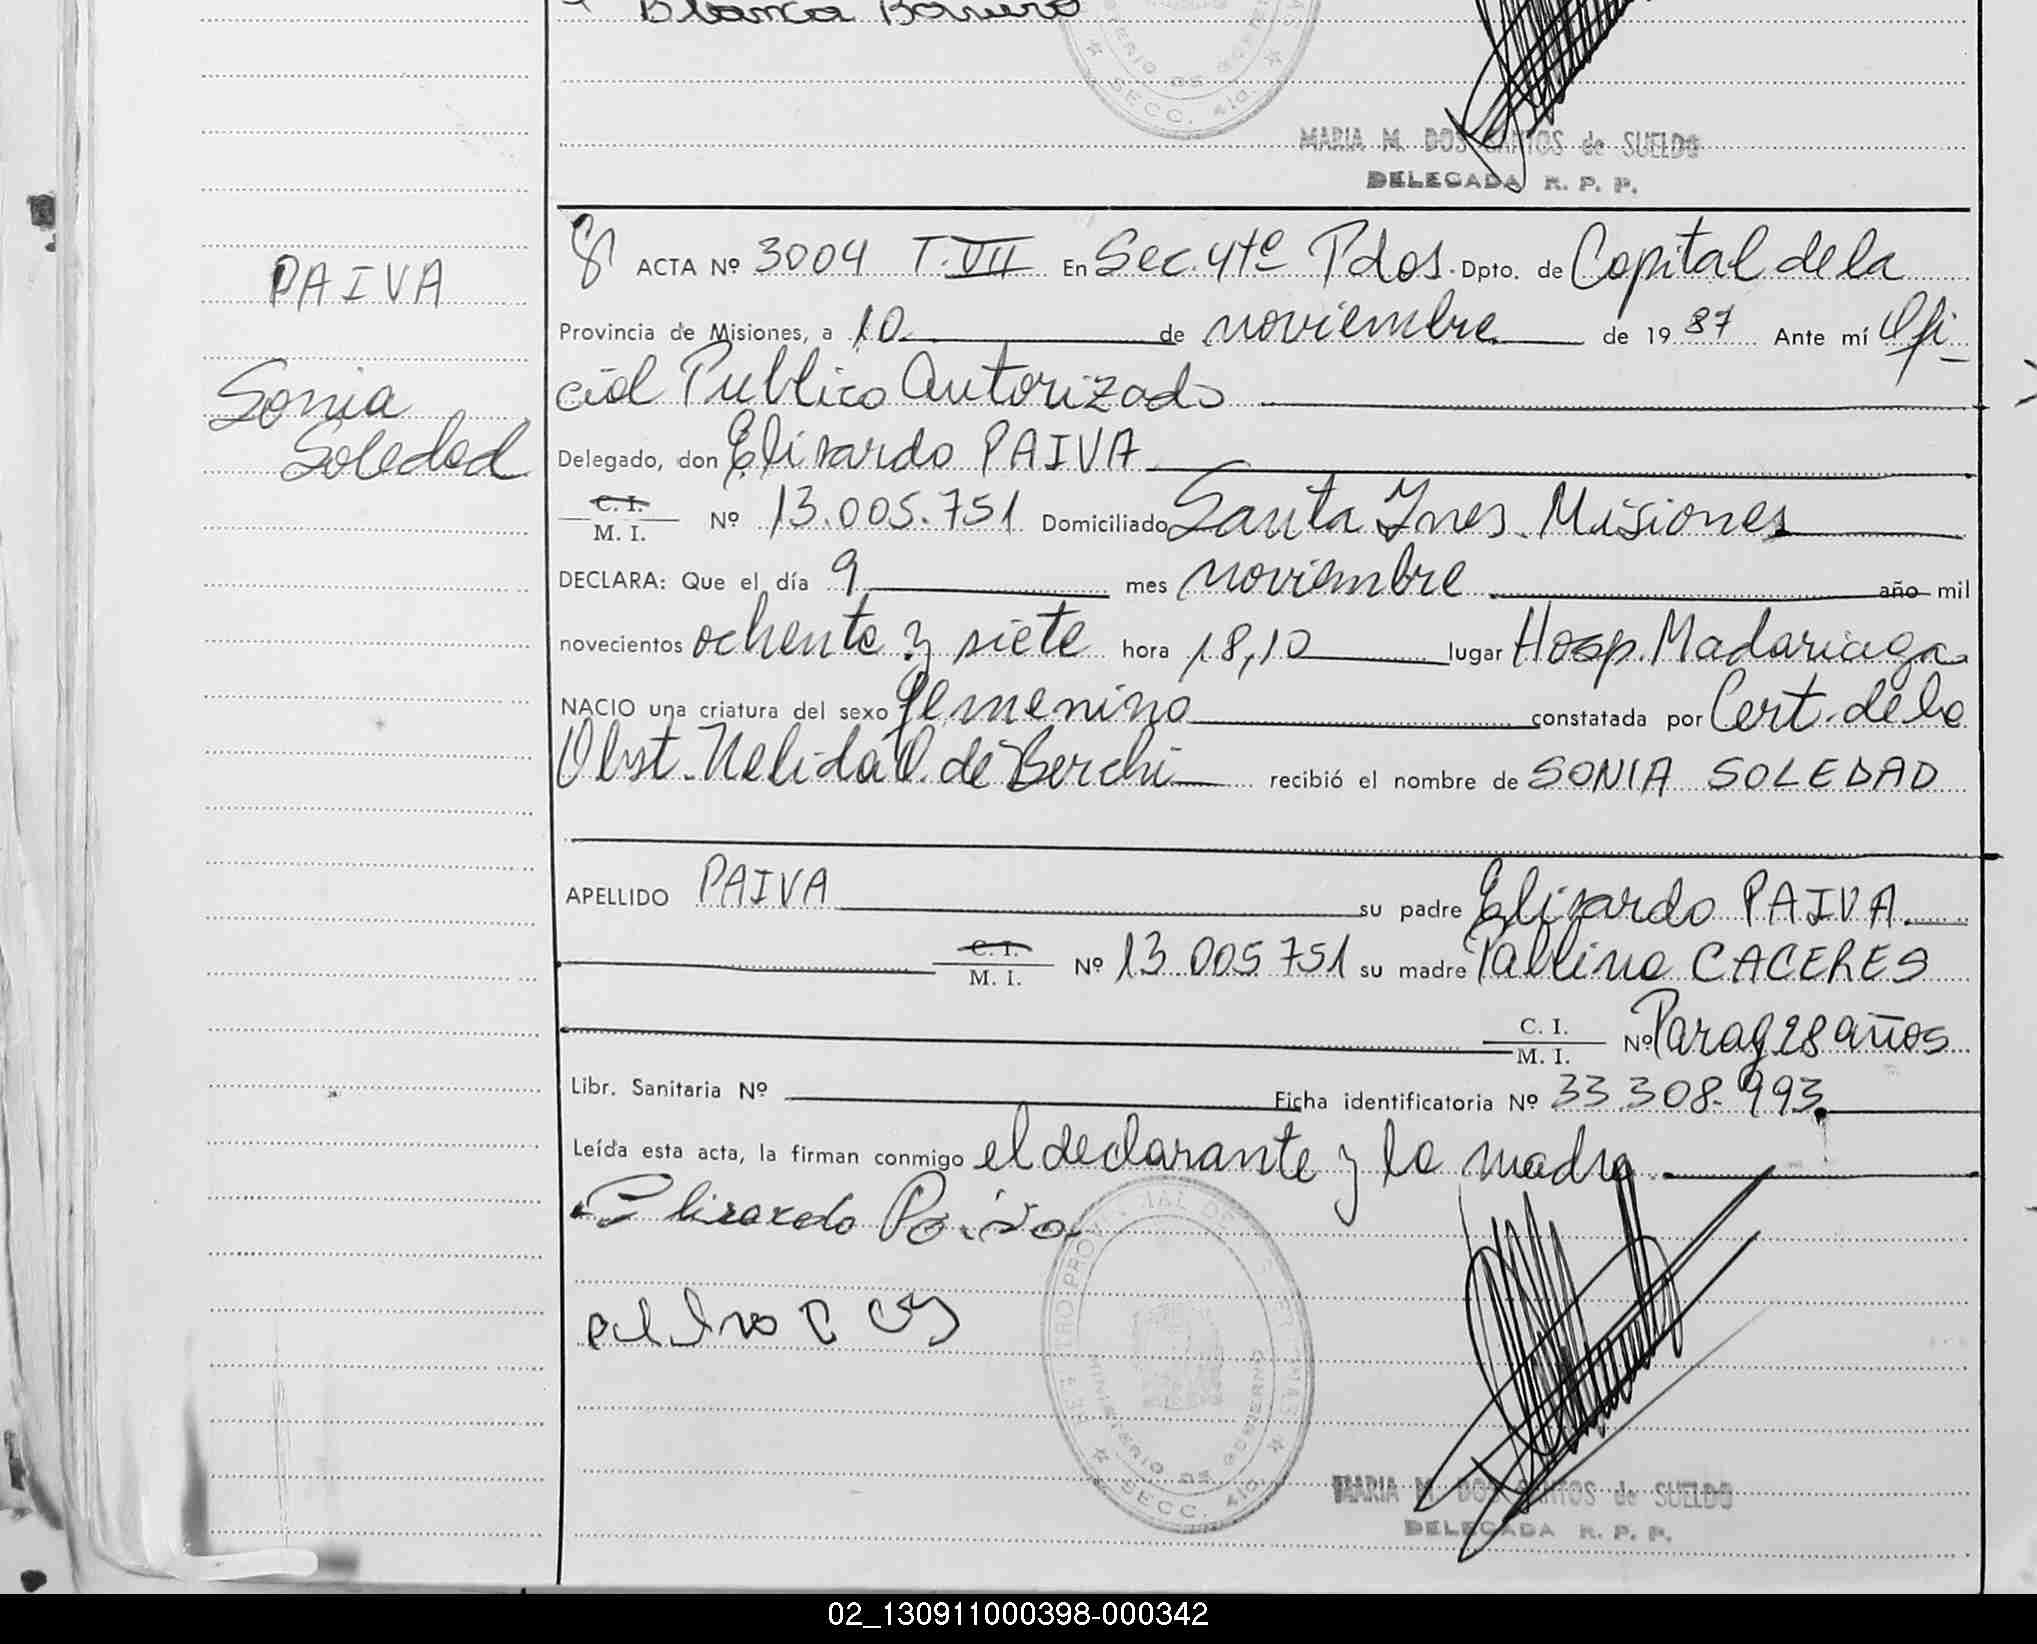 Blanca Barrero
SECC. 4ta.
MARIA M. DOS SANTOS de SUELDO
DELEGADA R. P. P.
PAIVA
Sonia
Soledad
8 ACTA Nº 3004 T. VII En Sec. 4ta Pdos. Dpto. de Capital de la
Provincia de Misiones, a 10 de noviembre de 1987 Ante mí Ofi-
cial Publico Autorizado
Delegado, don Elizardo PAIVA
C. I. / M. I. Nº 13.005.751 Domiciliado Santa Ynes. Misiones
DECLARA: Que el día 9 mes noviembre año mil
novecientos ochenta y siete hora 18,10 lugar Hosp. Madariaga
NACIO una criatura del sexo femenino constatada por Cert. de la
Obst. Nelida O. de Berchi recibió el nombre de SONIA SOLEDAD
APELLIDO PAIVA su padre Elizardo PAIVA.
C. I. / M. I. Nº 13.005.751 su madre Pablina CACERES
C. I. / M. I. Nº Parag 28 años
Libr. Sanitaria Nº Ficha identificatoria Nº 33.308.993
Leída esta acta, la firman conmigo el declarante y la madre
Elizardo Paiva
REGISTRO PROVINCIAL DE LAS PERSONAS
MINISTERIO DE GOBIERNO
SECC. 4ta.
MARIA M. DOS SANTOS de SUELDO
DELEGADA R. P. P.
02_130911000398-000342